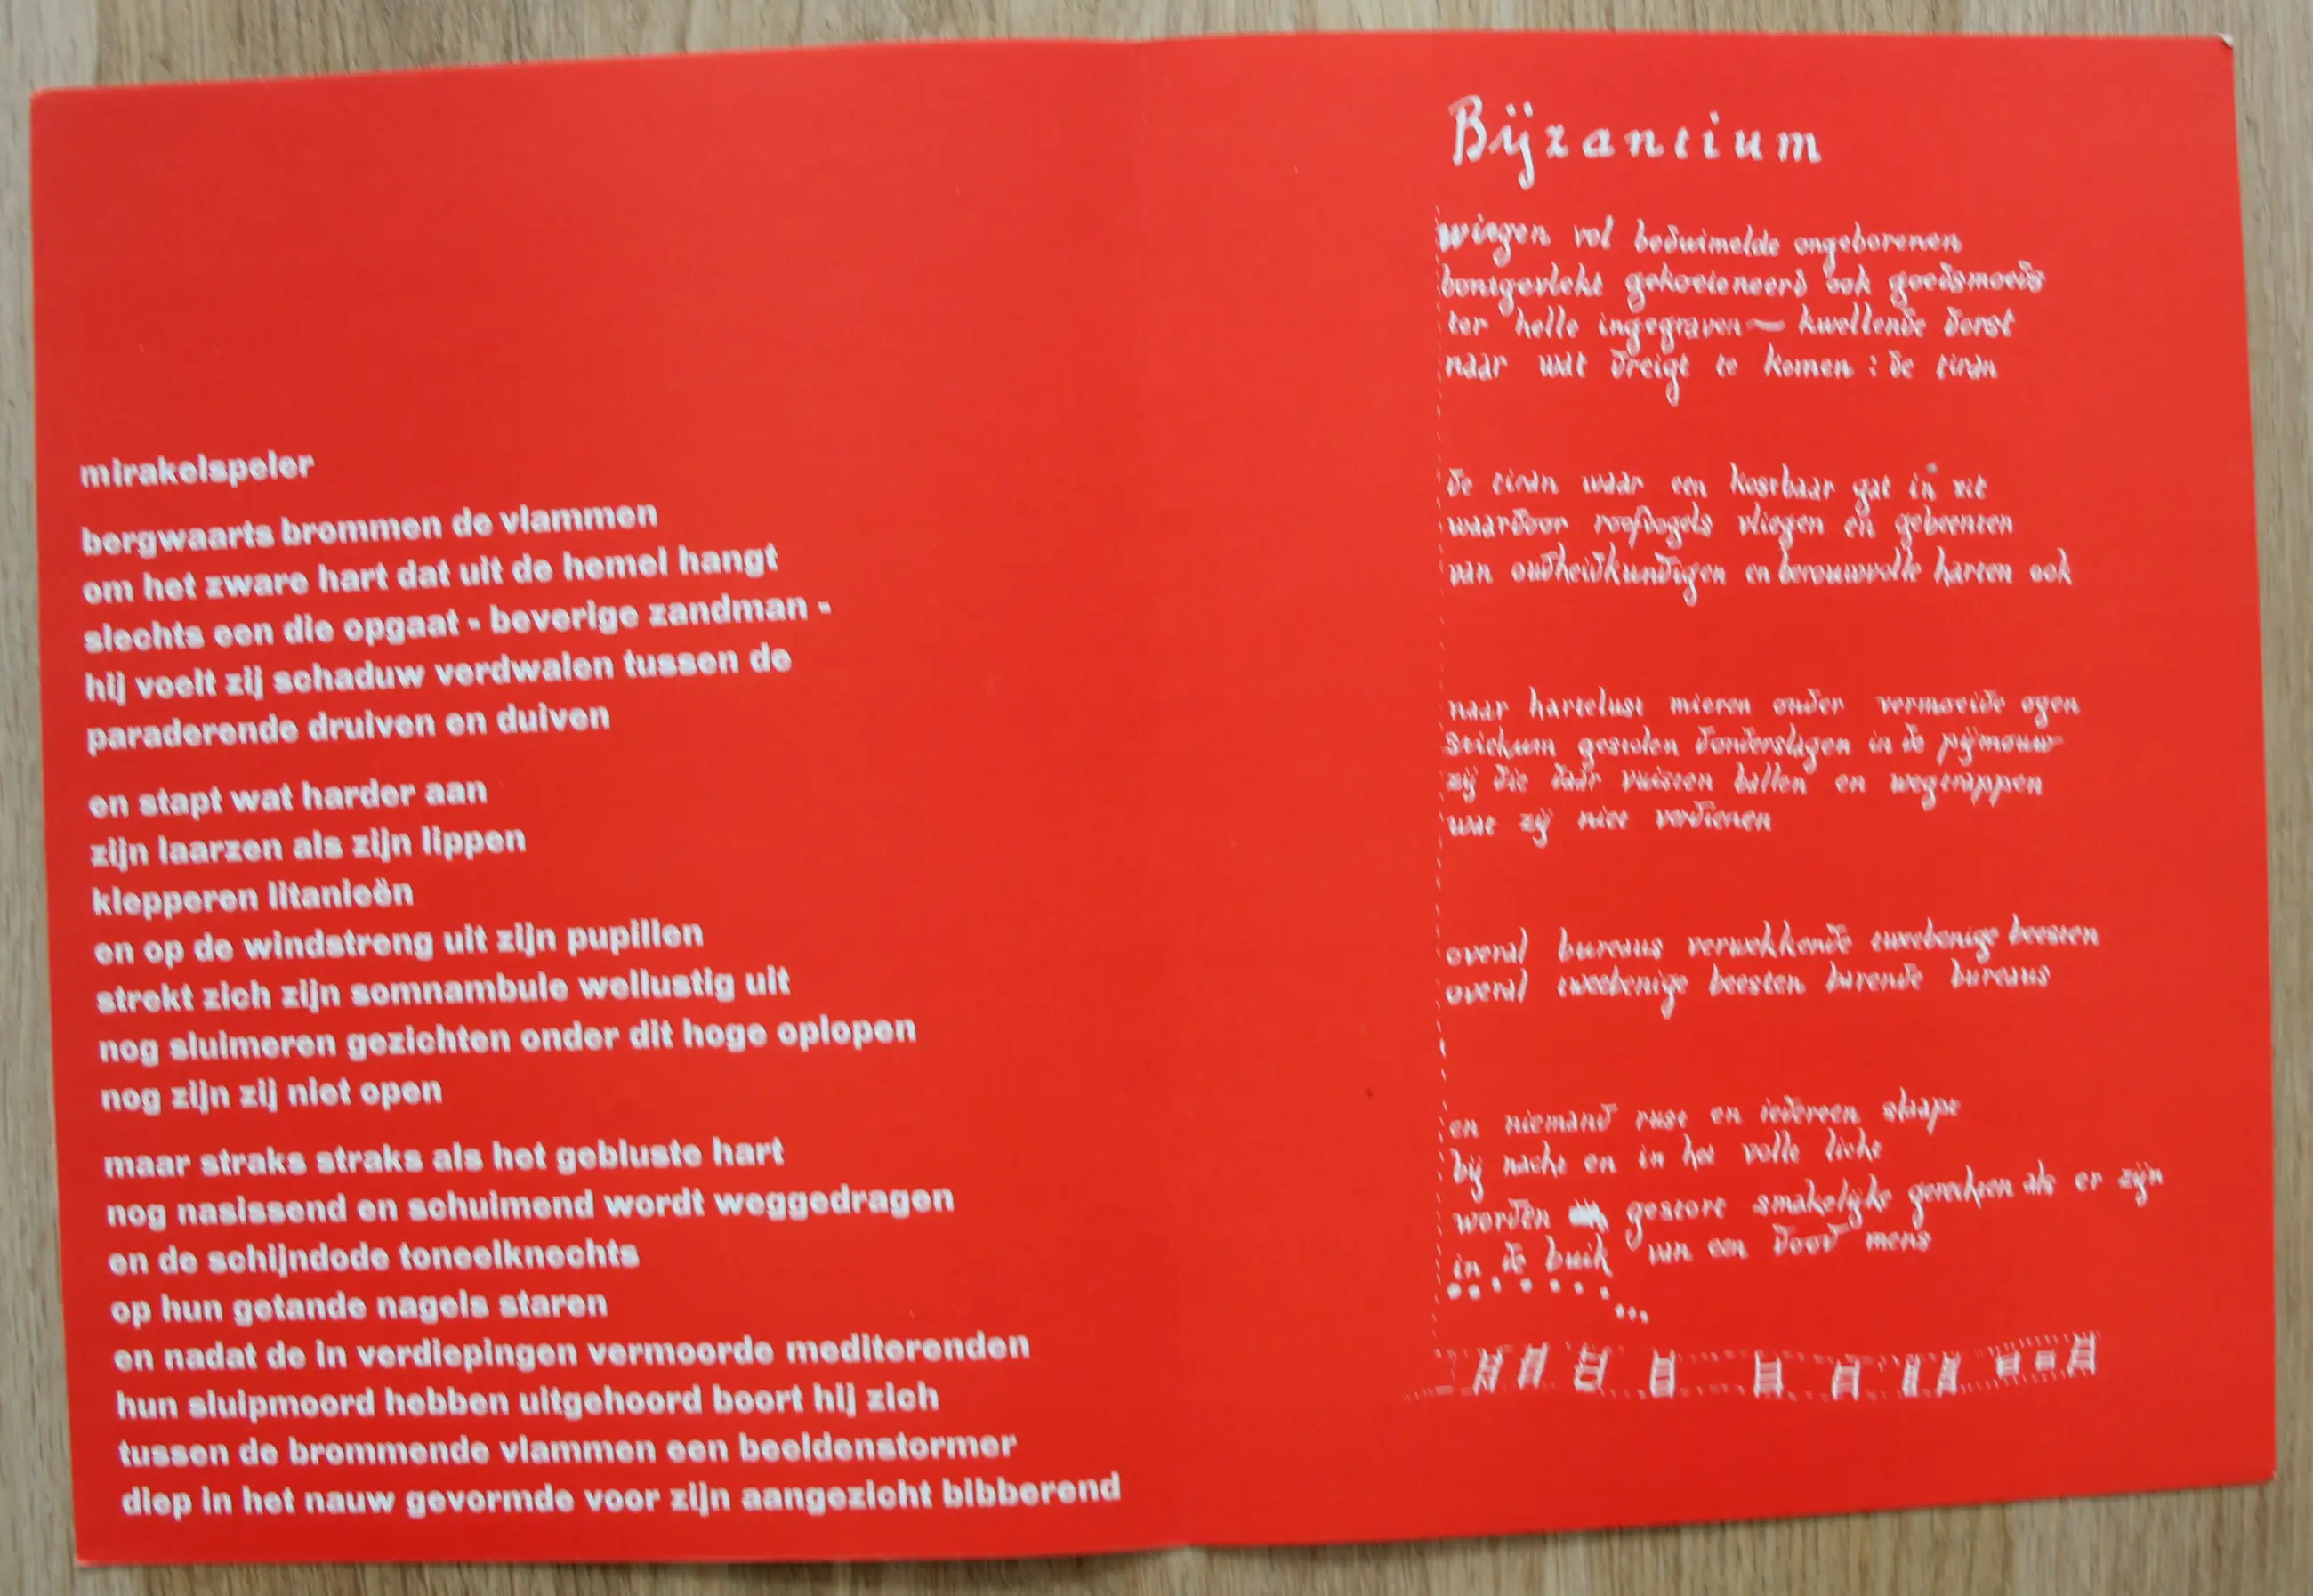 mirakelspeler
bergwaarts brommen de vlammen
om het zware hart dat uit de hemel hangt
slechts een die opgaat - beverige zandman -
hij voelt zij schaduw verdwalen tussen de
paraderende druiven en duiven
en stapt wat harder aan
zijn laarzen als zijn lippen
klepperen litanieën
en op de windstreng uit zijn pupillen
strekt zich zijn somnambule wellustig uit
nog sluimeren gezichten onder dit hoge oplopen
nog zijn zij niet open
maar straks straks als het gebluste hart
nog nasissend en schuimend wordt weggedragen
en de schijndode toneelknechts
op hun getande nagels staren
en nadat de in verdiepingen vermoorde mediterenden
hun sluipmoord hebben uitgehoord boort hij zich
tussen de brommende vlammen een beeldenstormer
diep in het nauw gevormde voor zijn aangezicht bibberend
Bijzantium
wiegen vol beduimelde ongeborenen
bontgevlekt gekoeioneerd ook goedsmoeds
ter helle ingegraven — kwellende dorst
naar wat dreigt te komen : de tiran
de tiran waar een kostbaar gat in zit
waardoor roofvogels vliegen en gebeenten
van oudheidkundigen en berouwvolle harten ook
naar hartelust mieren onder vermoeide ogen
stiekum gestolen donderslagen in de pijmouw
zij die daar vuisten ballen en wegtrappen
wat zij niet verdienen
overal bureaus verwekkende tweebenige beesten
overal tweebenige beesten barende bureaus
en niemand rust en iedereen slaapt
bij nacht en in het volle licht
worden gestort smakelijke gerechten als er zijn
in de buik van een dood mens